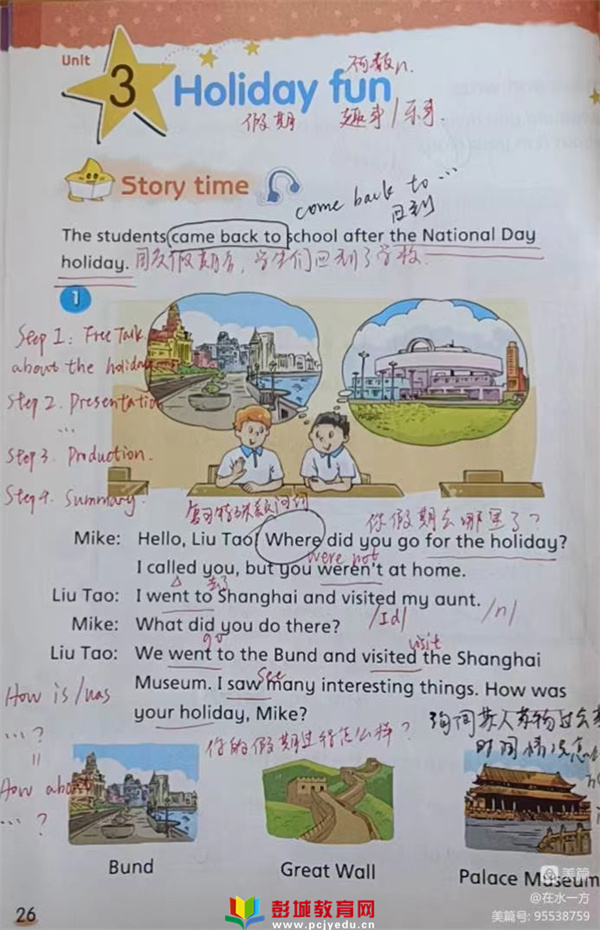 Unit
3 Holiday fun
不可数n.
假期 趣事/乐事.
Story time
come back to ...
回到
The students came back to school after the National Day
holiday. 国庆假期后, 学生们回到了学校.
1
Step 1: Free Talk
about the holiday
Step 2. Presentation
...
Step 3. Production.
Step 4. Summary.
特殊疑问词
你假期去哪里了?
Mike: Hello, Liu Tao! Where did you go for the holiday?
were not
I called you, but you weren't at home.
去了
Liu Tao: I went to Shanghai and visited my aunt.
/Id/ /n/
Mike: What did you do there?
go visit
Liu Tao: We went to the Bund and visited the Shanghai
see
Museum. I saw many interesting things. How was
your holiday, Mike?
How is/was
...?
=
How about
...?
你的假期过得怎么样?
询问某人某物过去
时间情况怎
Bund
Great Wall
Palace Museum
26
彭城教育网
www.pcjyedu.cn
美篇
@在水一方
美篇号: 95538759